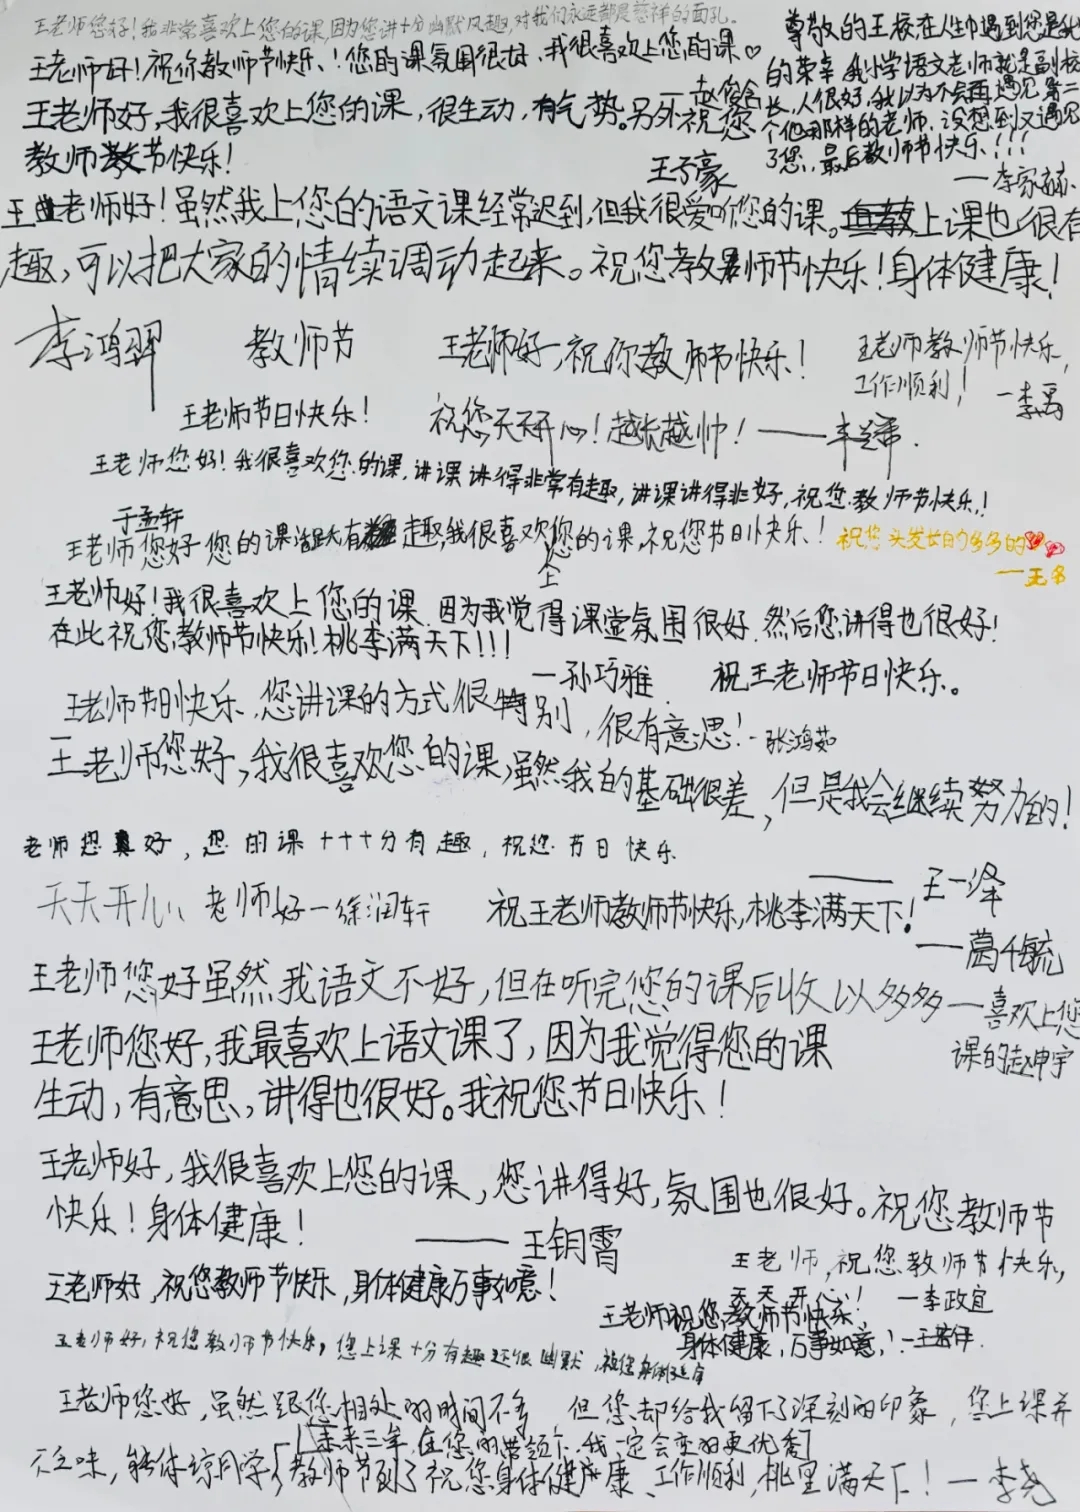 王老师您好！我非常喜欢上您的课,因为您讲十分幽默风趣,对我们永远都是慈祥的面孔。
王老师好！祝你教师节快乐、！您的课氛围很好、我很喜欢上您的课♡
一赵俗含
尊敬的王校在人生中遇到您是我
的荣幸 我小学语文老师就是副校
长,人很好,我以为不会再遇见第二
个他那样的老师,没想到又遇见
了您,最后教师节快乐!!!
一李家赫
王老师好,我很喜欢上您的课,很生动,有气势。另外祝您
教师节快乐！
王子豪
王老师好！虽然我上您的语文课经常迟到,但我很爱听您的课。上课也很有
趣,可以把大家的情续调动起来。祝您教师节快乐！身体健康！
李鸿羿
教师节
王老师节日快乐！
王老师好,祝你教师节快乐！
祝您天天开心！越长越帅！——
王老师教师节快乐,
工作顺利！
一李禹
王老师您好！我很喜欢您的课,讲课讲得非常有趣,讲课讲得非好,祝您教师节快乐！
于孟轩
王老师您好您的课有趣,我很喜欢上您的课,祝您节日快乐！
祝您头发长的多多的
一无名
王老师好！我很喜欢上您的课 因为我觉得课堂氛围很好 然后您讲得也很好！
在此祝您教师节快乐！桃李满天下!!!
一孙巧雅
祝王老师节日快乐。
王老师节日快乐、您讲课的方式很特别,很有意思！一张鸿茹
王老师您好,我很喜欢您的课,虽然我的基础很差,但是我会继续努力的！
——王一泽
老师您真好,您的课十十十分有趣,祝您节日快乐
天天开心、老师好一徐润轩
祝王老师教师节快乐,桃李满天下！
一葛千毓
王老师您好虽然我语文不好,但在听完您的课后收以多多一喜欢上您
课的赵申宇
王老师您好,我最喜欢上语文课了,因为我觉得您的课
生动,有意思,讲得也很好。我祝您节日快乐！
王老师好,我很喜欢上您的课,您讲得好,氛围也很好。祝您教师节
快乐！身体健康！
——王钥霄
王老师,祝您教师节快乐,
天天开心！
一李政宜
王老师好,祝您教师节快乐,身体健康万事如意！
王老师祝您教师节快乐,
身体健康,万事如意！
王老师好,祝您教师节快乐,您上课十分有趣还很幽默,祝您身体健康
王老师您好,虽然跟您相处的时间不多,但您却给我留下了深刻的印象,您上课并
不乏味,能体谅同学[未来三年,在您的带领下,我一定会变的更优秀]
教师节到了祝您身体健康、工作顺利,桃里满天下！一李尧